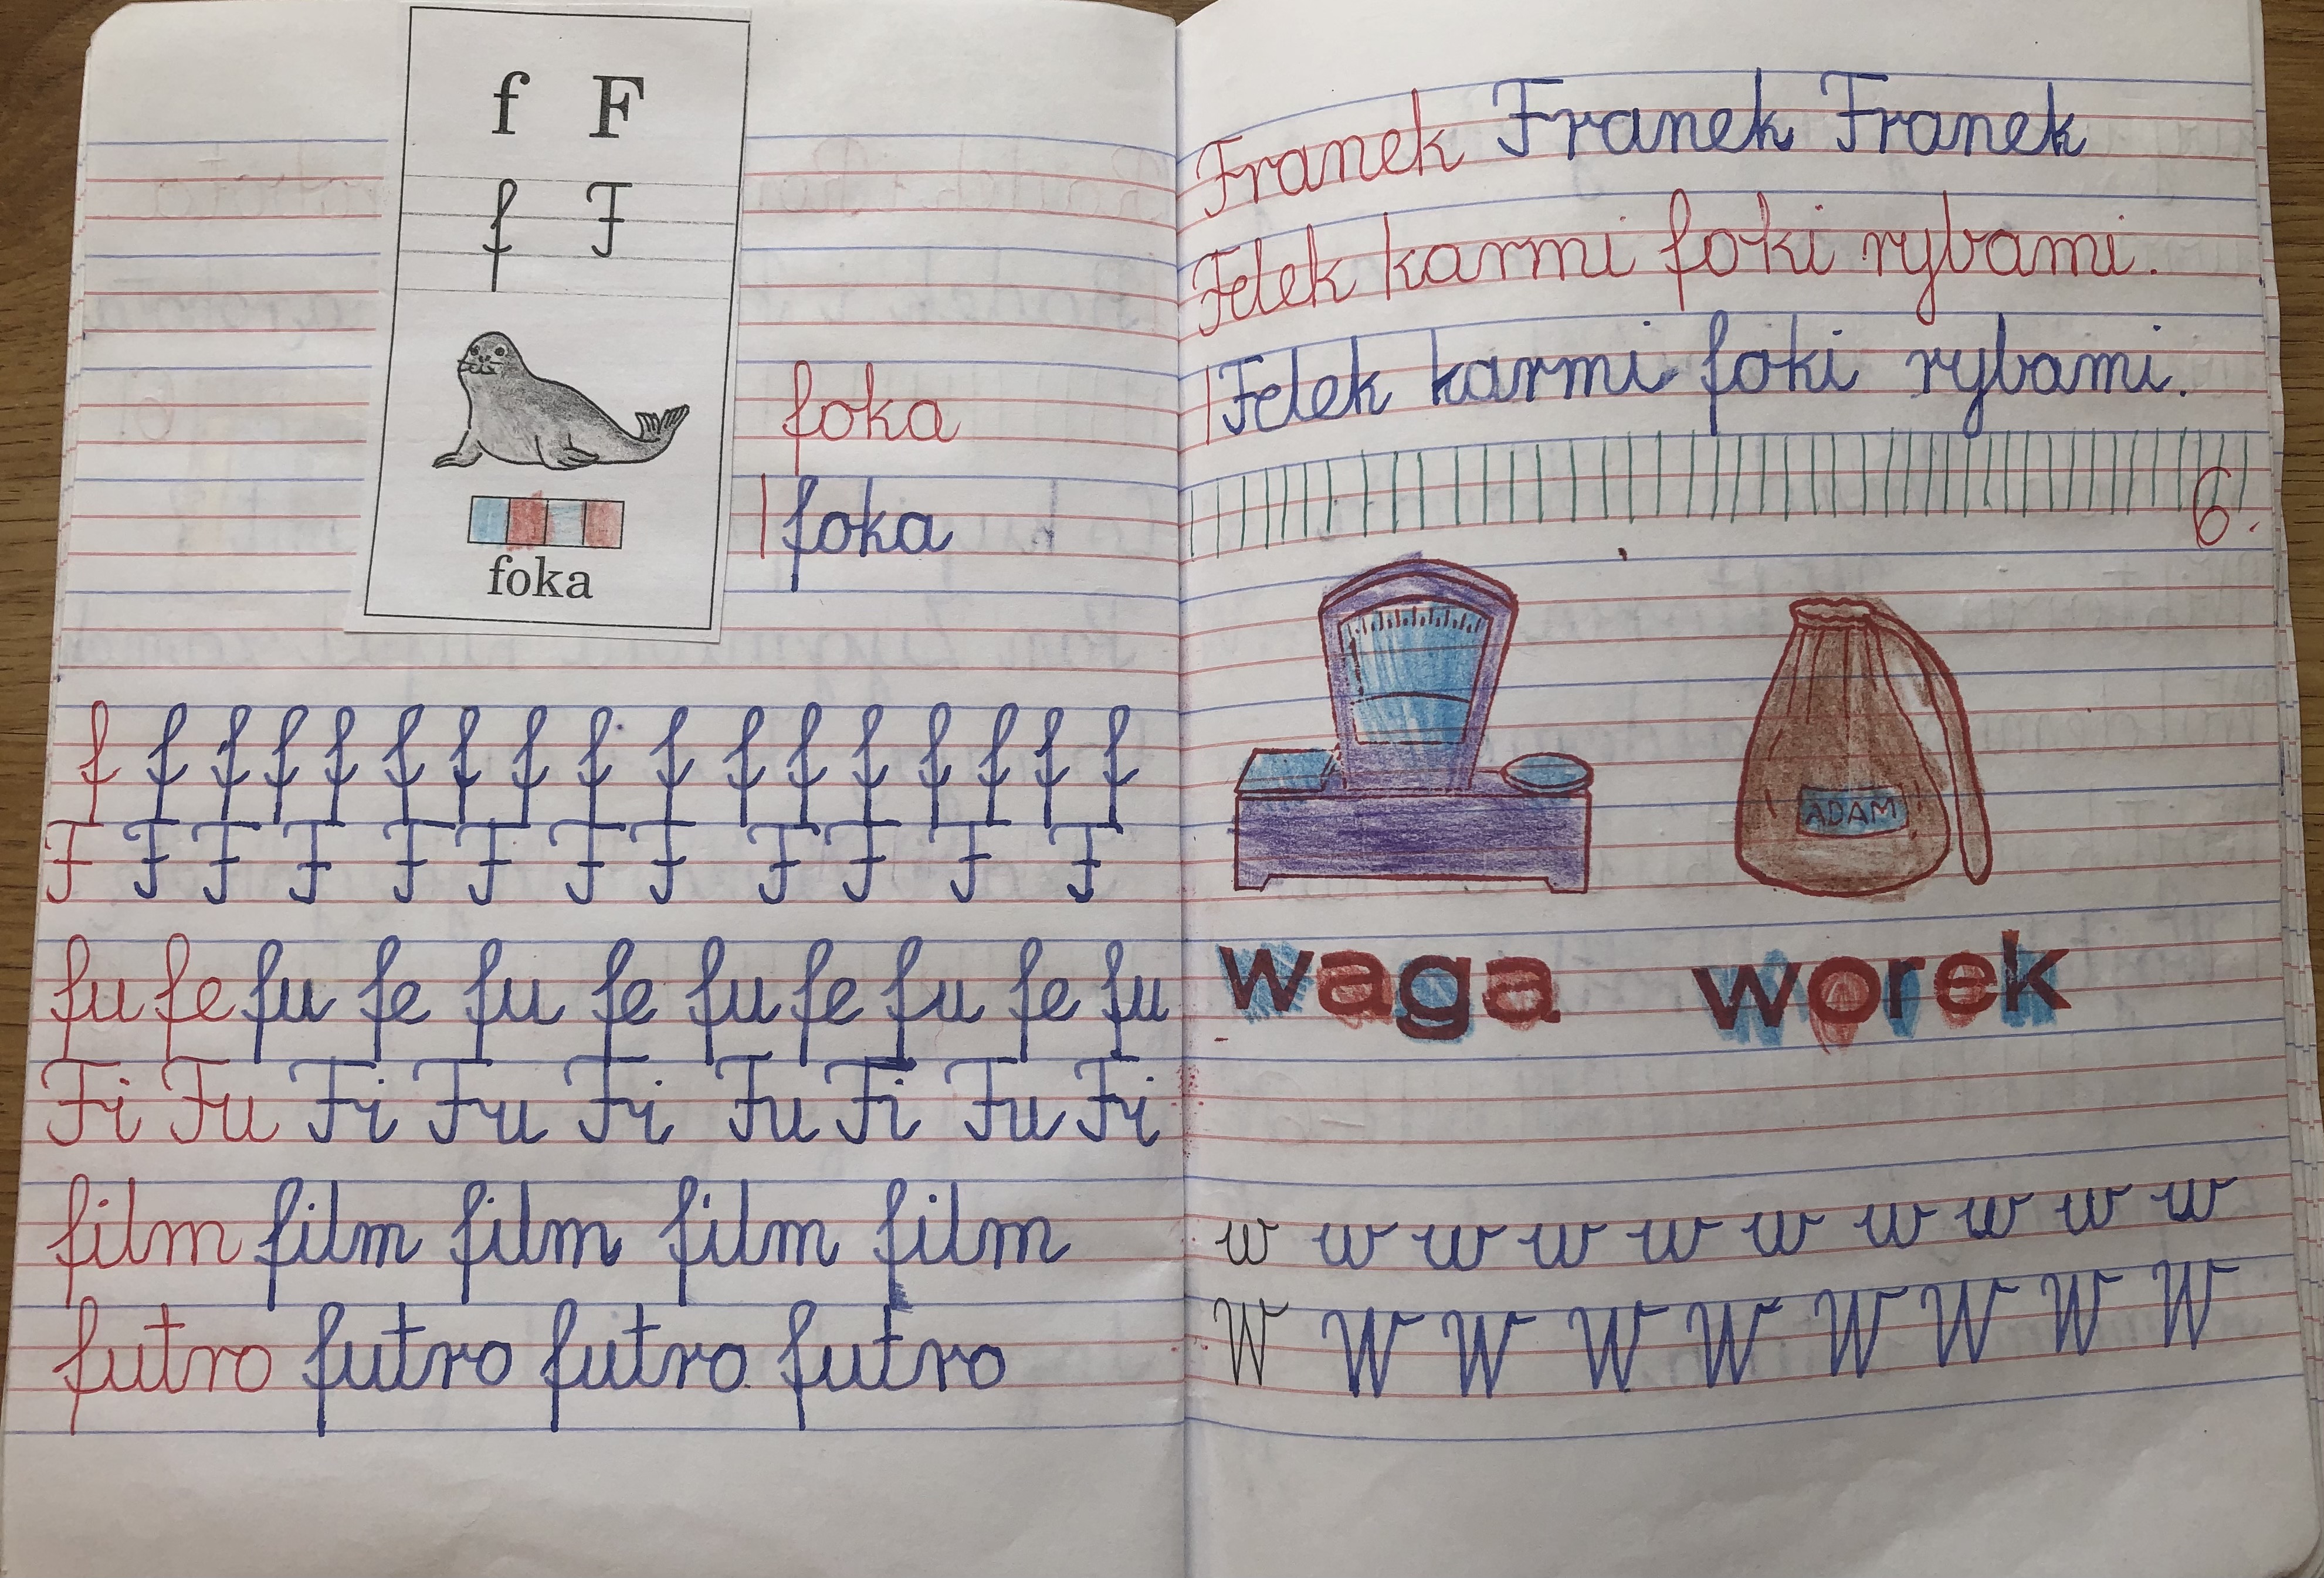 f F
f F
foka
foka
foka
f f f f f f f f f f f f f f f f f
F F F F F F F F F F F F
fu fe fu fe fu fe fu fe fu fe fu
Fi Fu Fi Fu Fi Fu Fi Fu Fi
film film film film film
futro futro futro futro
Franek Franek Franek
Felek karmi foki rybami.
Felek karmi foki rybami.
6.
ADAM
waga worek
w w w w w w w w w w
W W W W W W W W W